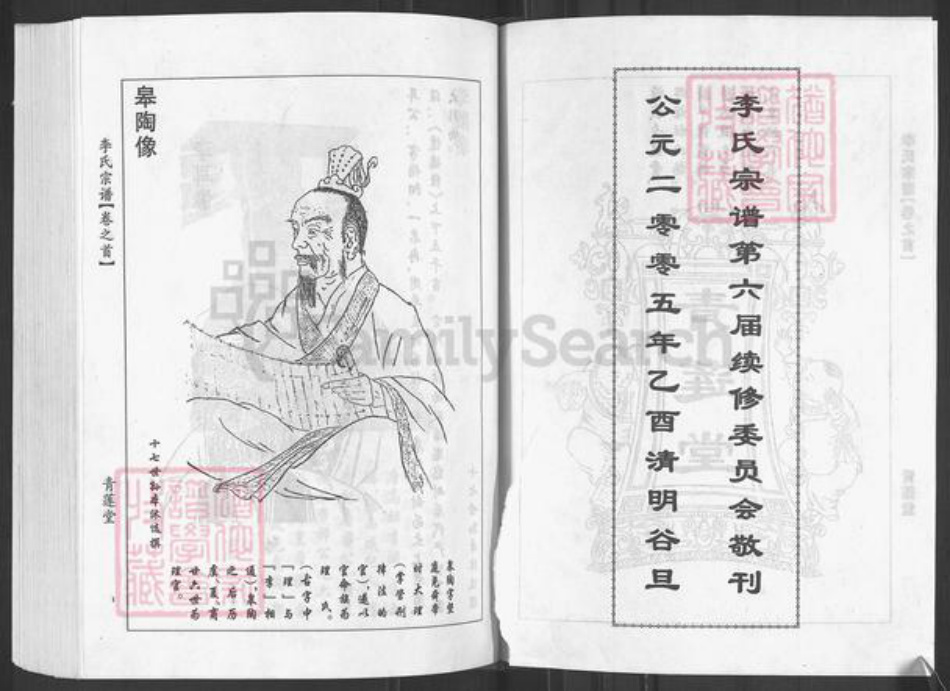 李氏宗谱第六届续修委员会敬刊
公元二零零五年乙酉清明谷旦
皋陶像
皋陶字坚
庭尧舜帝
时大理
(掌管刑
律法的
官),遂以
官命族为
理氏。
(古字中
「理」与
「李」相
通),皋陶
之后历
虞、夏、商
廿六世为
理官。
李氏宗谱【卷之首】
青莲堂
FamilySearch